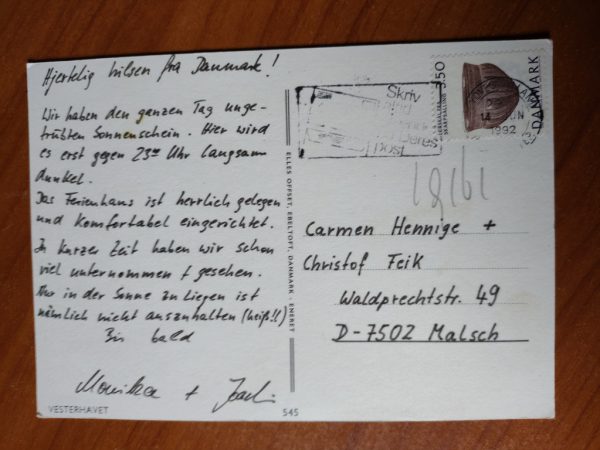 Hjertelig hilsen fra Danmark!
Wir haben den ganzen Tag unge-
trübten Sonnenschein. Hier wird
es erst gegen 23⁰⁰ Uhr langsam
dunkel.
Das Ferienhaus ist herrlich gelegen
und komfortabel eingerichtet.
In kurzer Zeit haben wir schon
viel unternommen + gesehen.
Nur in der Sonne zu liegen ist
nämlich nicht auszuhalten (heiß!!)
Bis bald
Monika + 
VESTERHAVET
545
ELLES OFFSET, EBELTOFT, DANMARK - ENERET
Skriv
Deres
post
350
DANMARK
14 JUN
1992
Carmen Hennige +
Christof Feik
Waldprechtstr. 49
D-7502 Malsch